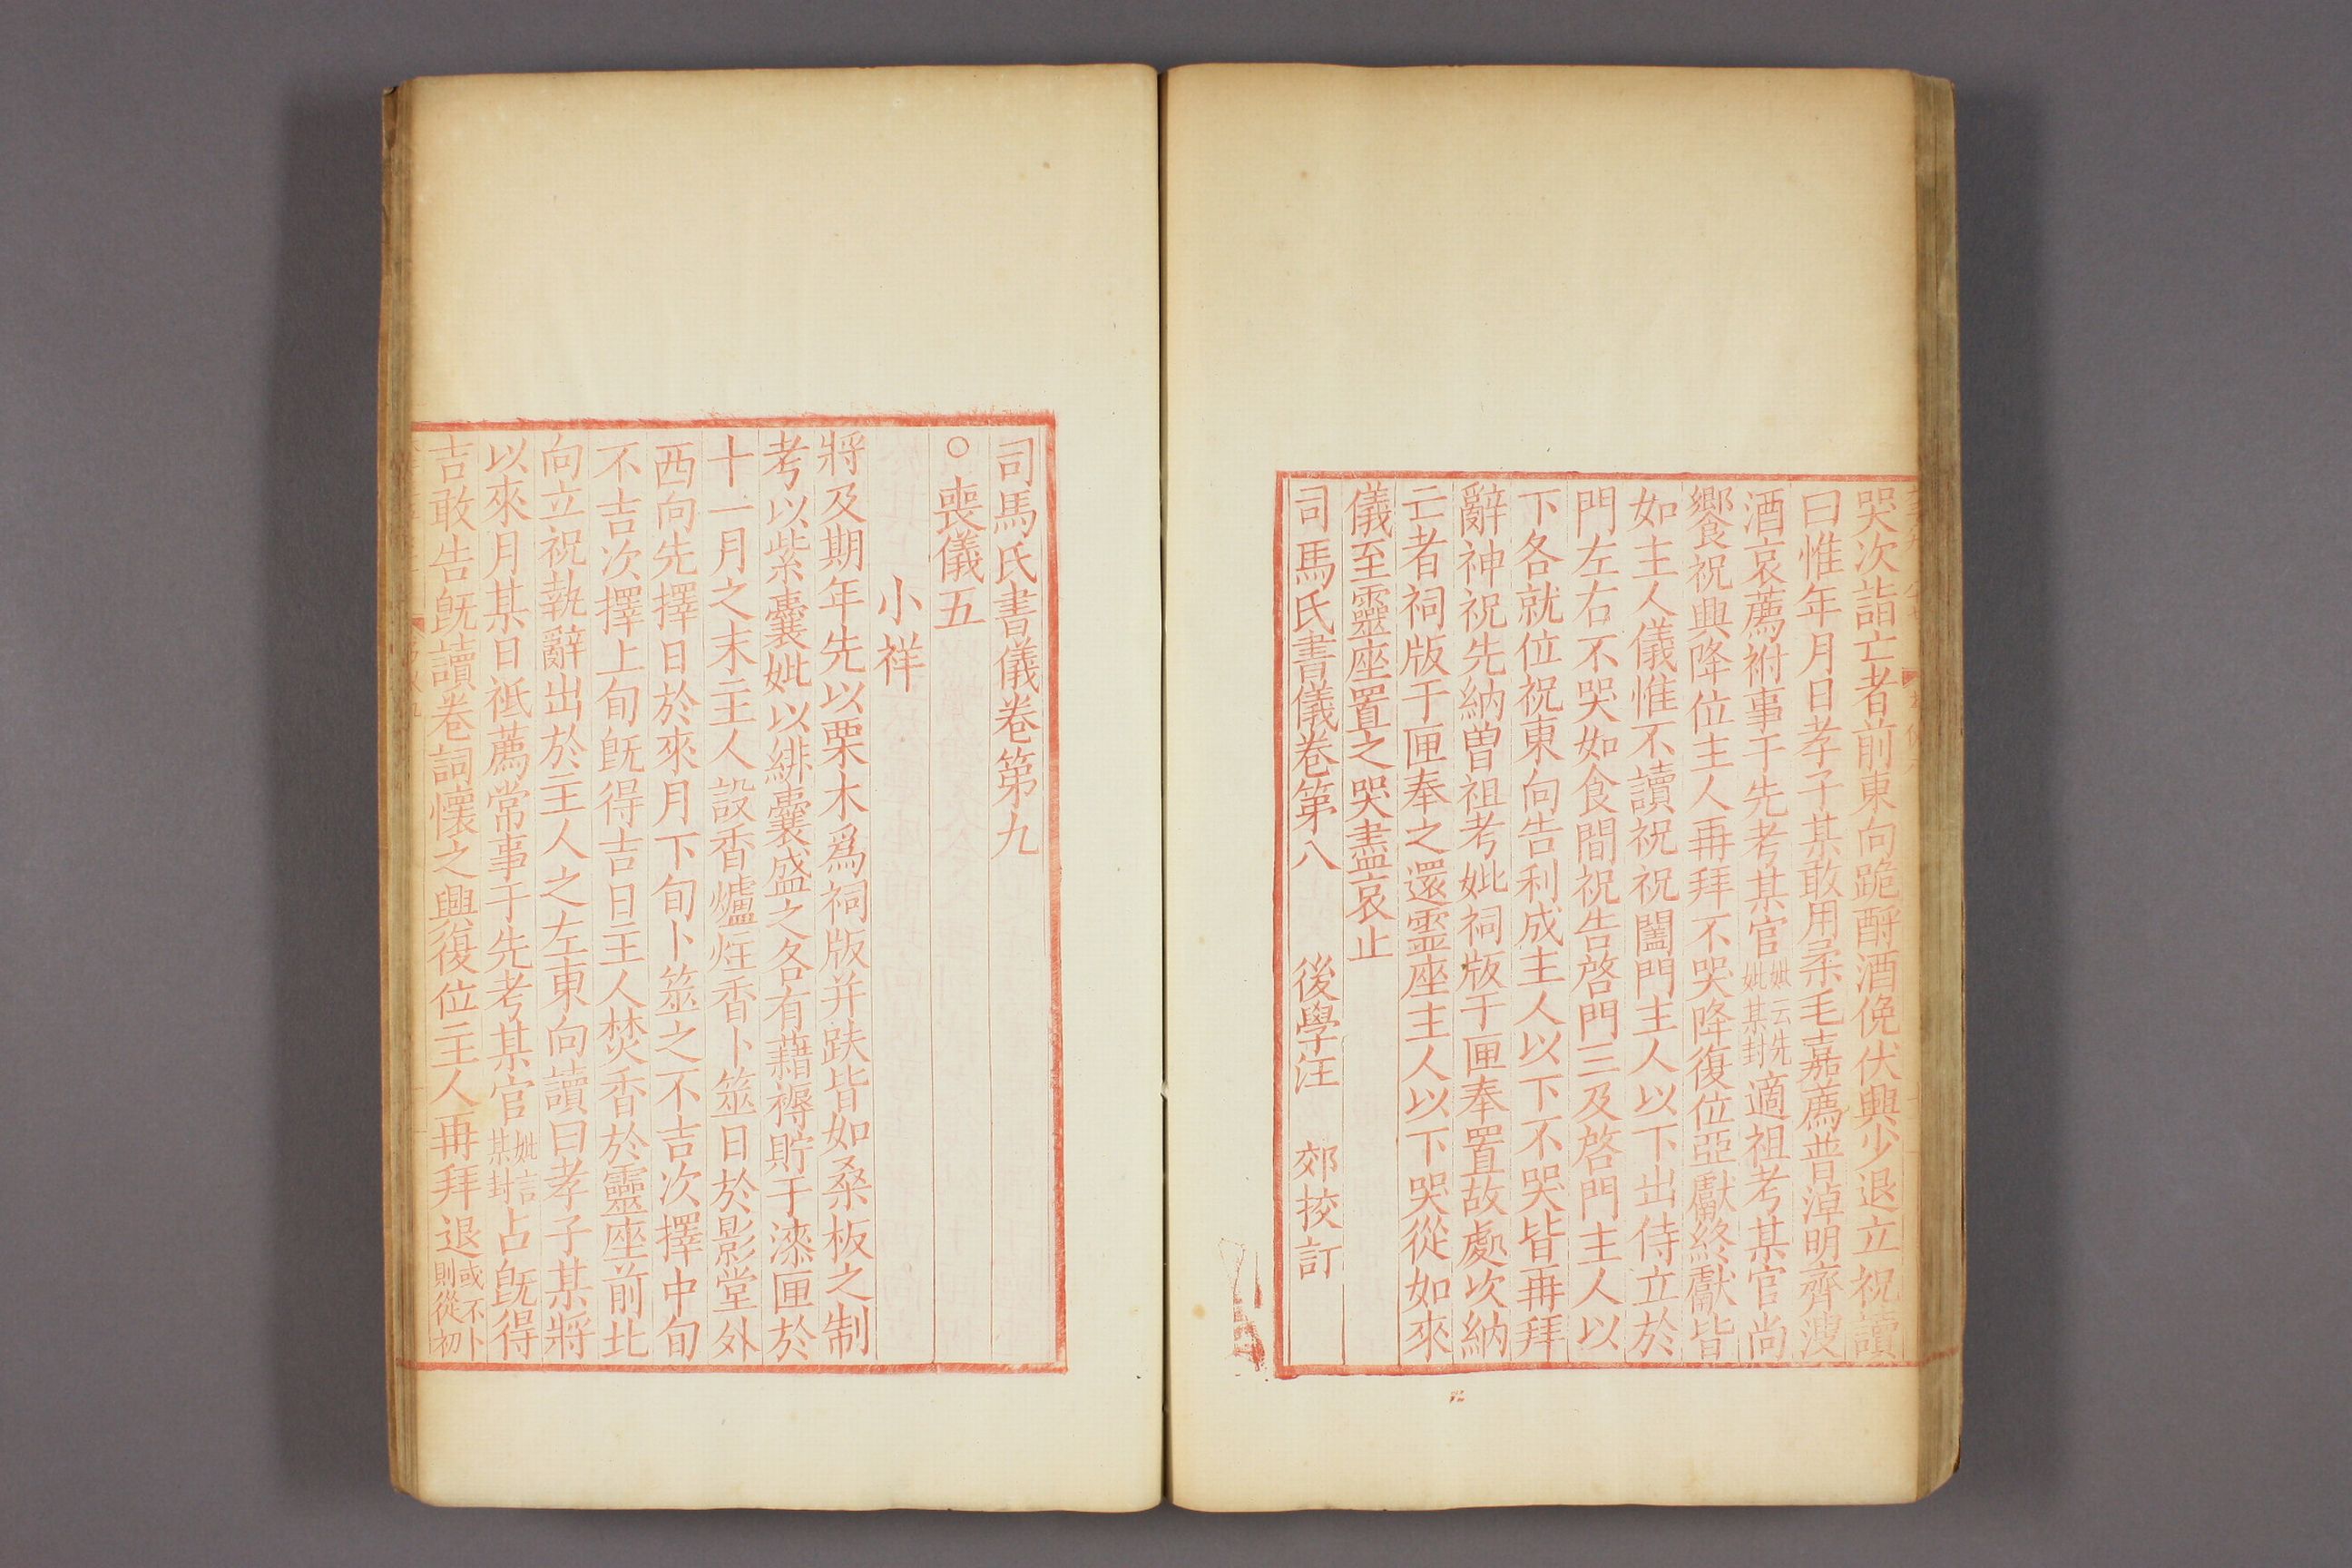 哭次詣亡者前東向跪酹酒俛伏興少退立祝讀
曰惟年月日孝子某敢用柔毛嘉薦普淖明齊溲
酒哀薦祔事于先考某官妣云先妣某封適祖考某官尚
饗祝興降位主人再拜不哭降復位亞獻終獻皆
如主人儀惟不讀祝祝闔門主人以下出侍立於
門左右不哭如食間祝告啓門三及啓門主人以
下各就位祝東向告利成主人以下不哭皆再拜
辭神祝先納曽祖考妣祠版于匣奉置故處次納
亡者祠版于匣奉之還靈座主人以下哭從如來
儀至靈座置之哭盡哀止
司馬氏書儀卷第八 後學汪 郊挍訂
司馬氏書儀卷第九
○喪儀五
小祥
將及期年先以栗木爲祠版并趺皆如桑板之制
考以紫囊妣以緋囊盛之各有藉褥貯于漆匣於
十一月之末主人設香爐炷香卜筮日於影堂外
西向先擇日於來月下旬卜筮之不吉次擇中旬
不吉次擇上旬旣得吉日主人焚香於靈座前北
向立祝執辭出於主人之左東向讀曰孝子某將
以來月某日祗薦常事于先考某官妣言某封占旣得
吉敢告旣讀卷詞懷之興復位主人再拜退或不卜則從初